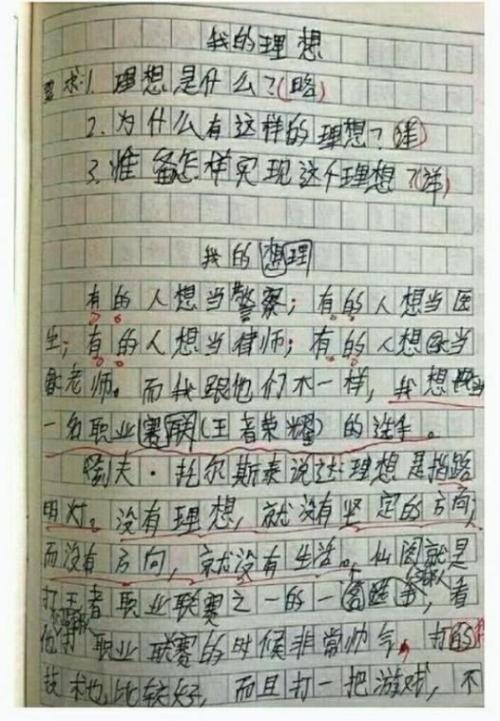 我的理想
要求:1.理想是什么?(略)
2.为什么有这样的理想?(详)
3.准备怎样实现这个理想?(详)
我的想理
有的人想当警察;有的人想当医
生;有的人想当律师;有的人想当
老师。而我跟他们不一样,我想
一名职业赛联(王者荣耀)的选手。
列夫·托尔斯泰说过:理想是指路
明灯。没有理想,就没有坚定的方向,
而没有方向,就没有生活。仙阁就是
打王者职业联赛之一的一选手,看
他打职业联赛的时候非常帅气,打的
技术也比较好,而且打一把游戏,不